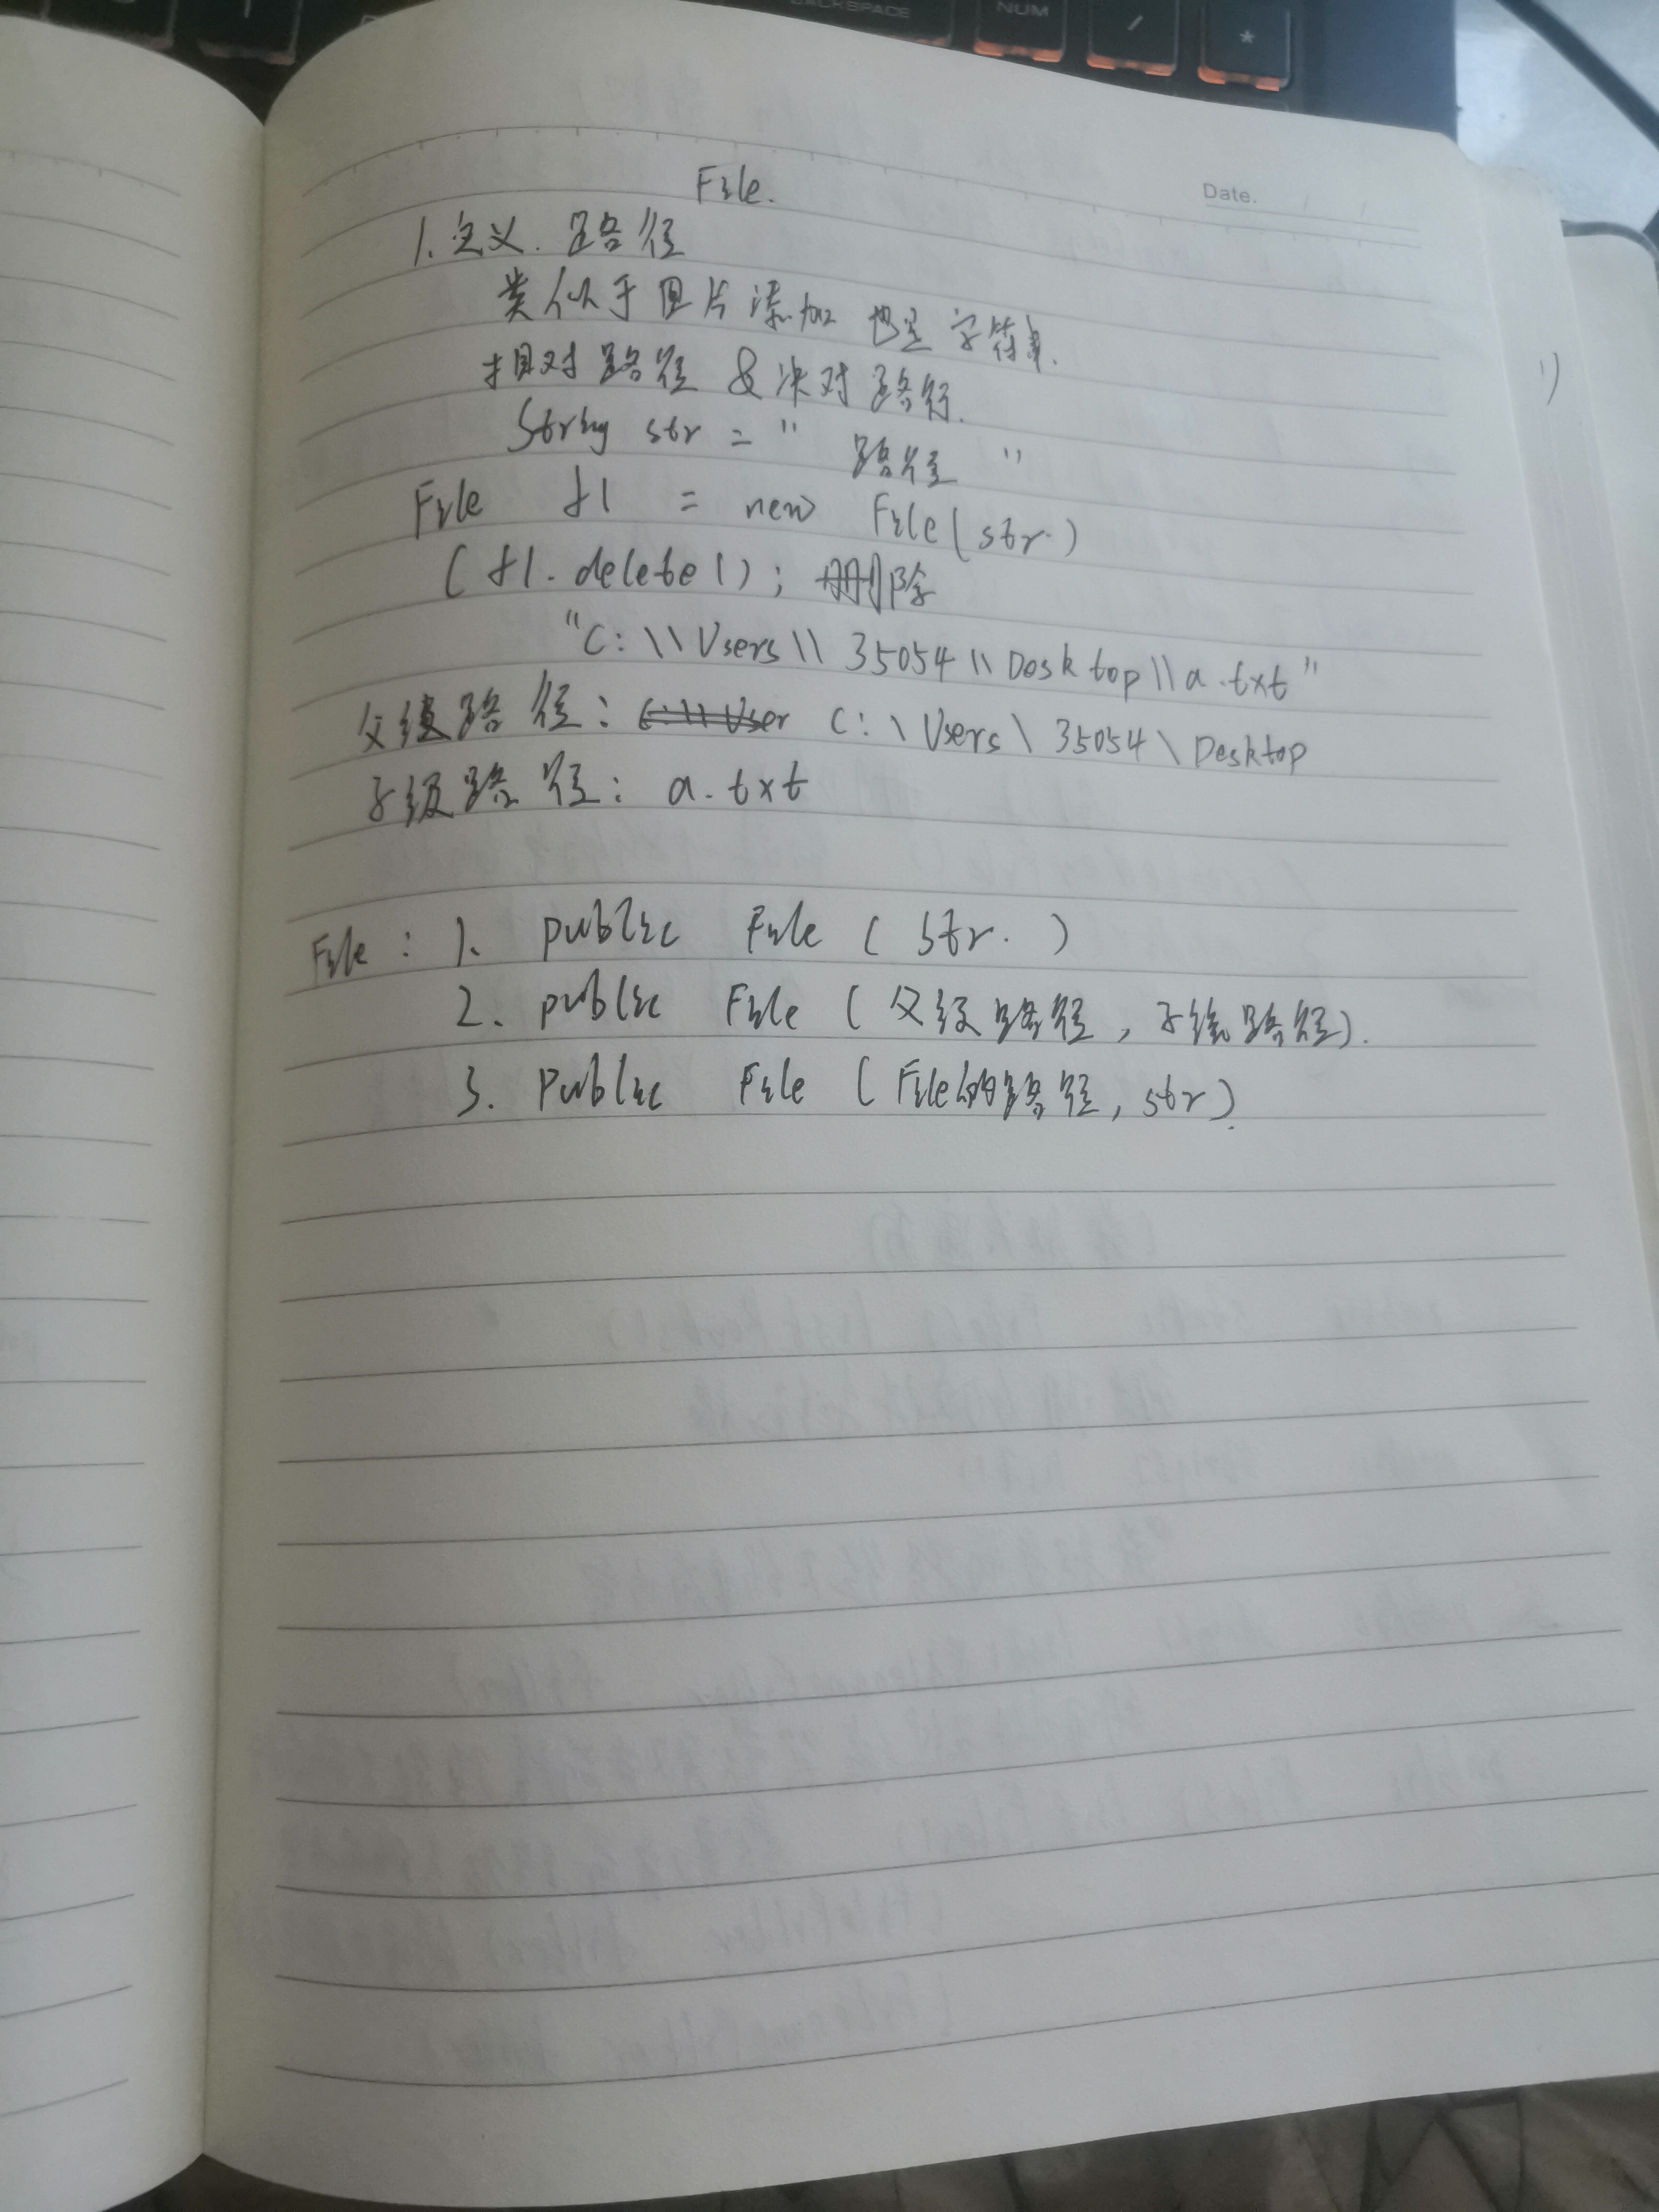 BACKSPACE
NUM
/
*
Date. / /
File.
1. 定义. 路径
类似于图片添加 也是 字符串.
相对路径 & 决对路径.
String str = " 路径 "
File f1 = new File(str.)
(f1.delete(); 删除
"C:\\Users\\35054\\Desktop\\a.txt"
父级路径: C:\\User C:\Users\35054\Desktop
子级路径: a.txt
File: 1. public File ( str. )
2. public File ( 父级路径, 子级路径).
3. Public File ( File的路径, str).